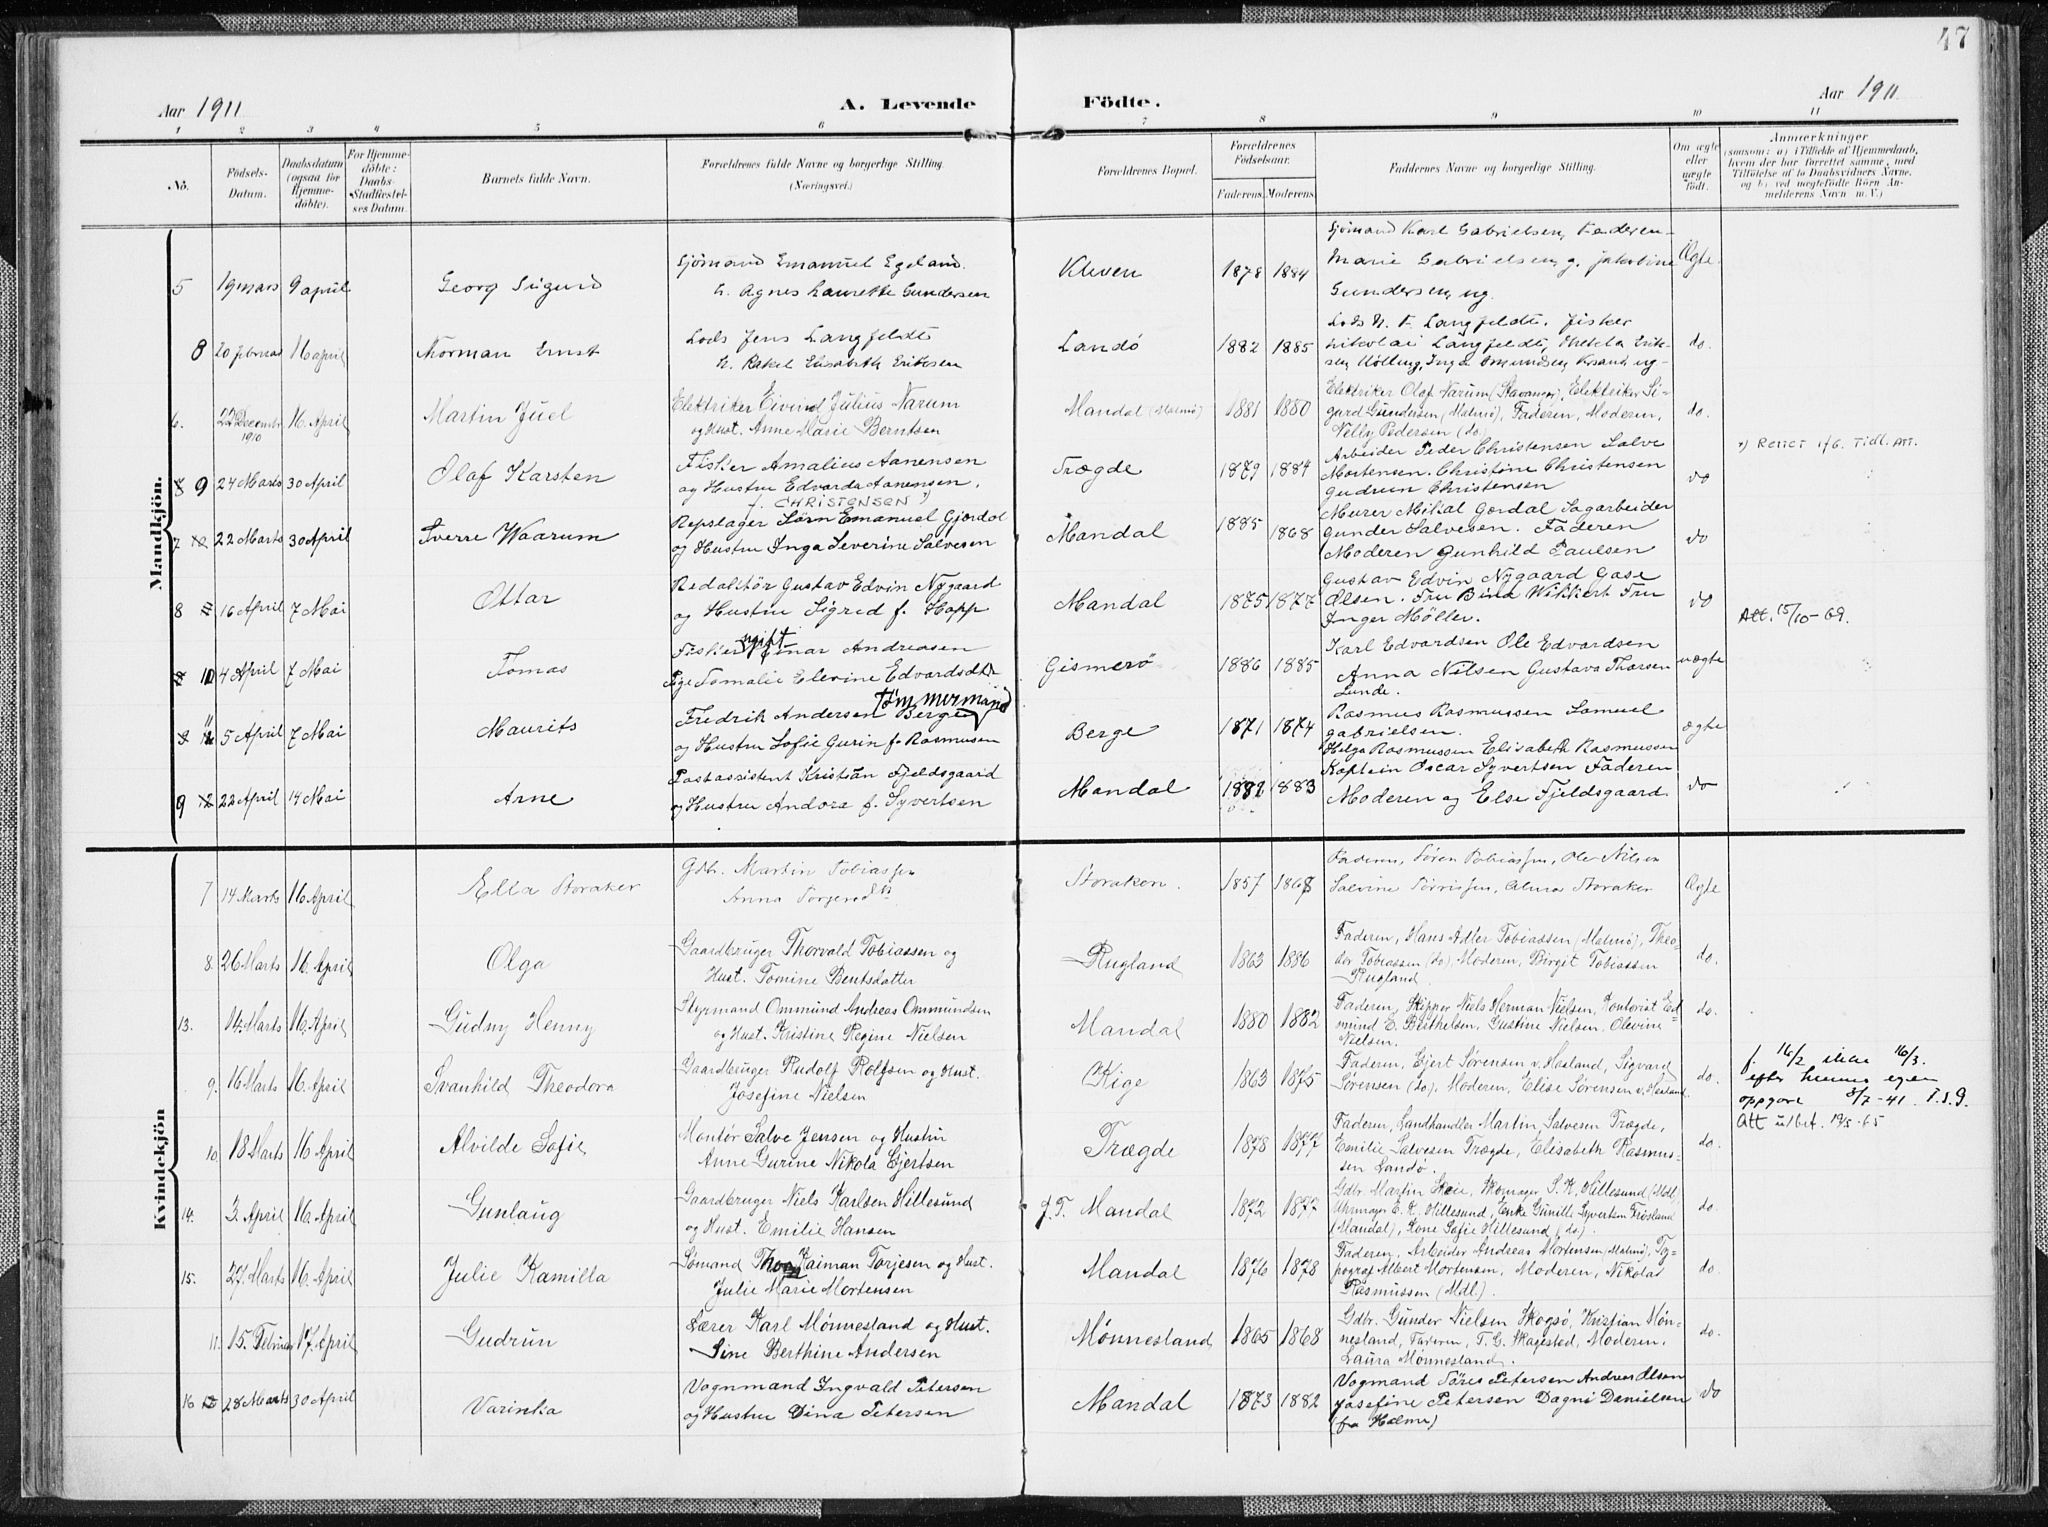 47
Aar 1911
A. Levende Födte.
Aar 1911
1 2 3 4 5 6 7 8 9 10 11
No.
Födsels-
Datum.
Daabsdatum
(ogsaa for
Hjemme-
döbte).
For Hjemme-
döbte:
Daabs-
Stadfæstel-
ses Datum.
Barnets fulde Navn.
Forældrenes fulde Navne og borgerlige Stilling.
(Næringsvei.)
Forældrenes Bopæl.
Forældrenes
Födselsaar.
Faderens. Moderens.
Faddernes Navne og borgerlige Stilling.
Om ægte
eller
uægte
födt.
Anmærkninger
(saasom: a) i Tilfælde af Hjemmedaab,
hvem der har forrettet samme, med
Tilföielse af to Daabsvidners Navne,
og b) ved uægtefödte Börn An-
melderens Navn m. V.)
Mandkjön.
5 19 mars 9 april Georg Sigurd
Sjömand Emanuel Egeland
h. Agnes Laurette Gundersen
Kleven 1878 1884
Sjömand Karl Gabrielsen, Faderen
Marie Gabrielsen, g. Jakobine
Gundersen, ug.
Ægte
8 20 februar 16 april Norman Ernst
Lods Jens Langfeldt
h. Rakel Elisabeth Eriksen
Landö 1882 1885
Lods N. F. Langfeldt, Fisker
Nikolai Langfeldt, Thekla Erik-
sen Kölling, Inga Omundsen, Krsand, ug.
do.
6. 22 December 1910 16. April Martin Juel
Elektriker Eivind Julius Narum
og Hust. Anne Marie Berntsen
Mandal (Malmö) 1881 1880
Elektriker Olaf Narum (Stavanger), Elektriker Si-
gurd Gundersen, (Malmö), Faderen, Moderen,
Nelly Pedersen (do.)
do.
9 24 Marts 30 April Olaf Karsten
Fisker Amalius Aanensen
og Hustru Edvarda Aanensen,
f. CHRISTENSEN
Trægde 1879 1884
Arbeider Peder Christensen Salve
Mortensen. Christine Christensen
Gudrun Christensen
do
Rettet ifG. Tidl. Att.
7 22 Marts 30 April Sverre Waarum
Repslager Sörn Emanuel Gjerdal
og Hustru Inga Severine Salvesen
Mandal 1885 1868
Murer Milial Gerdal Sagarbeider
Gunder Salvesen. Faderen
Moderen Gunhild Paulsen
do
8 16 April 7 Mai Ottar
Redaktör Gustav Edvin Nygaard
og Hustru Sigred f. Hopp
Mandal 1875 1877
Gustav Edvin Nygaard Gase
Olsen. Fru Bina Wikkert Fru
Inger Möller.
do
Att. 15/10-69.
10 4 April 7 Mai Tomas
Fisker ugift Einar Andreasen
Pige Tomalie Elevine Edvardsdtr
Gismerö 1886 1885
Karl Edvardsen Ole Edvardsen
Anna Nilsen Gustava Thorsen
Lunde.
uægte
11 5 April 7 Mai Maurits
Tömmermand
Fredrik Andersen Berge
og Hustru Sofie Gurin f. Rasmusen
Berge 1871 1874
Rasmus Rasmussen Samuel
Gabrielsen.
Helga Rasmussen Elisabeth Rasmussen
ægte
9 12 22 April 14 Mai Arne
Postassistent Kristian Fjeldsgaard
og Hustru Andora f. Syvertsen
Mandal 1882 1883
Kaptein Oscar Syvertsen Faderen
Moderen og Else Fjeldsgaard
do
Kvindekjön
7 14 Marts 16 April Ella Storaker
Gdb. Martin Tobiassen
Anna Torjersdtr
Storaker. 1857 1868
Faderen, Sören Tobiassen, Ole Nilsen
Salvine Törrissen, Alma Storaker
Ægte
8. 26 Marts 16. April Olga
Gaardbruger Thorvald Tobiassen og
Hust. Tomine Berntsdatter
Rugland 1863 1886
Faderen, Hans Adler Tobiassen (Malmö), Theo-
dor Tobiassen (do), Moderen, Birgit Tobiassen
Rugland.
do.
13. 14. Marts 16. April Gudny Henny
Styrmand Ommund Andreas Ommundsen
og Hust. Kristine Regine Nielsen
Mandal 1880 1882
Faderen, Skipper Niels Herman Nielsen, Kontorist Ed-
mund E. Berthelsen, Gustine Nielsen, Olevine
Nielsen.
do.
9. 16 Marts 16. April Svanhild Theodora
Gaardbruger Rudolf Rolfsen og Hust.
Josefine Nielsen
Kige 1863 1875
Faderen, Gjert Sörensen v. Hesland, Sigvard
Sörensen (do.) Moderen, Elise Sörensen v. Hesland.
do.
f. 16/2 ikke 16/3.
efter hennes egen
oppgave 3/7-41. T.S.G.
Att utbet. 19/5-65
10. 18 Marts 16 April Alvilde Sofie
Montör Salve Jensen og Hustru
Anne Gurine Nikola Gjertsen
Trægde 1878 1877
Faderen, Landhandler Martin Salvesen Trægde,
Emilie Salvesen Trægde, Elisabeth Rasmus-
sen Landö.
do.
14. 3. April 16. April Gunlaug
Gaardbruger Niels Karlsen Hillesund
og Hust. Emilie Hansen
f. T. Mandal 1872 1877
Gdbr. Martin Skeie, Skomager S. K. Hillesund (Mdl)
Uhrmager E. K. Hillesund, Enke Gunille Syvertsen Frösland
(Mandal), Kone Sofie Hillesund (do).
do.
15. 27. Marts 16. April Julie Kamilla
Sömand Kaiman Torjesen og Hust.
Julie Marie Mortensen
Mandal 1876 1878
Faderen, Arbeider Andreas Mortensen (Malmö), Ty-
pograf Albert Mortensen, Moderen, Nikolai
Rasmussen (Mdl.).
do.
11. 15. Februar 17. April Gudrun
Lærer Karl Mönnesland og Hust.
Sine Berthine Andersen
Mönnesland 1865 1868
Gdbr. Gunder Nielsen Skogsö, Kristian Mön-
nesland, Faderen, T. G. Skagestad, Moderen,
Laura Mönnesland.
do.
16 28 Marts 30 April Varinka
Vognmand Ingvald Petersen
og Hustru Dina Petersen
Mandal 1873 1882
Vogmand Töres Petersen Andreas Olsen
Josefine Petersen Dagni Danielsen
(fra Halme)
do